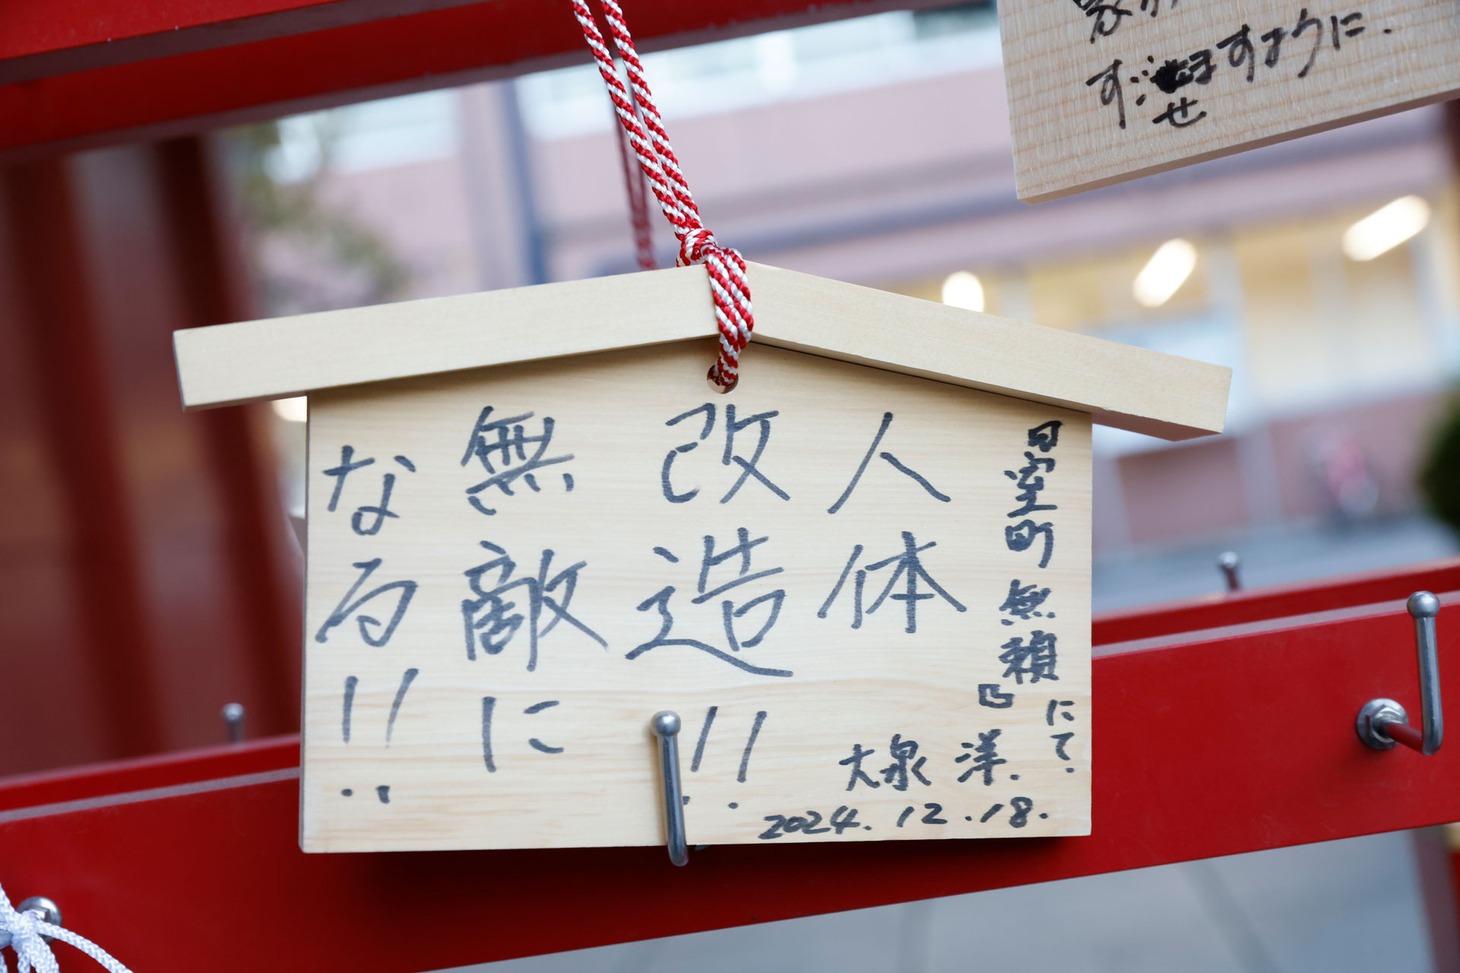 すごせますように.
日室町無頼凸にて.
人体
改造!!
無敵に
なる!!
大泉洋.
2024.12.18.